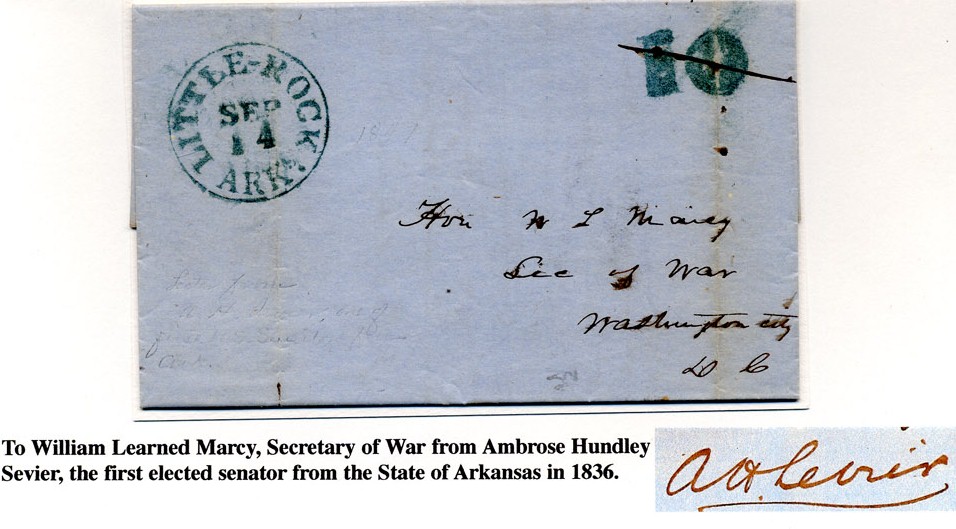 LITTLE-ROCK
SEP
14
ARK.
10
Hon W L Marcy
Sec of War
Washington city
D C
from
To William Learned Marcy, Secretary of War from Ambrose Hundley
Sevier, the first elected senator from the State of Arkansas in 1836.
A H Sevier